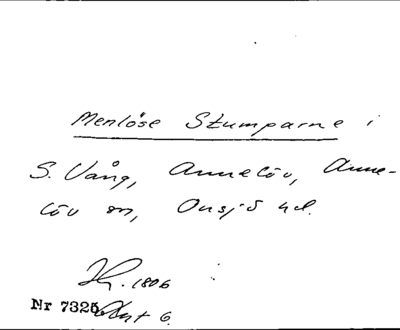 Menlöse Stumparne i
S. Vång, Annelöv, Anne-
löv sn, Onsjö hd.
1806
Nr 7325
Akt 6.